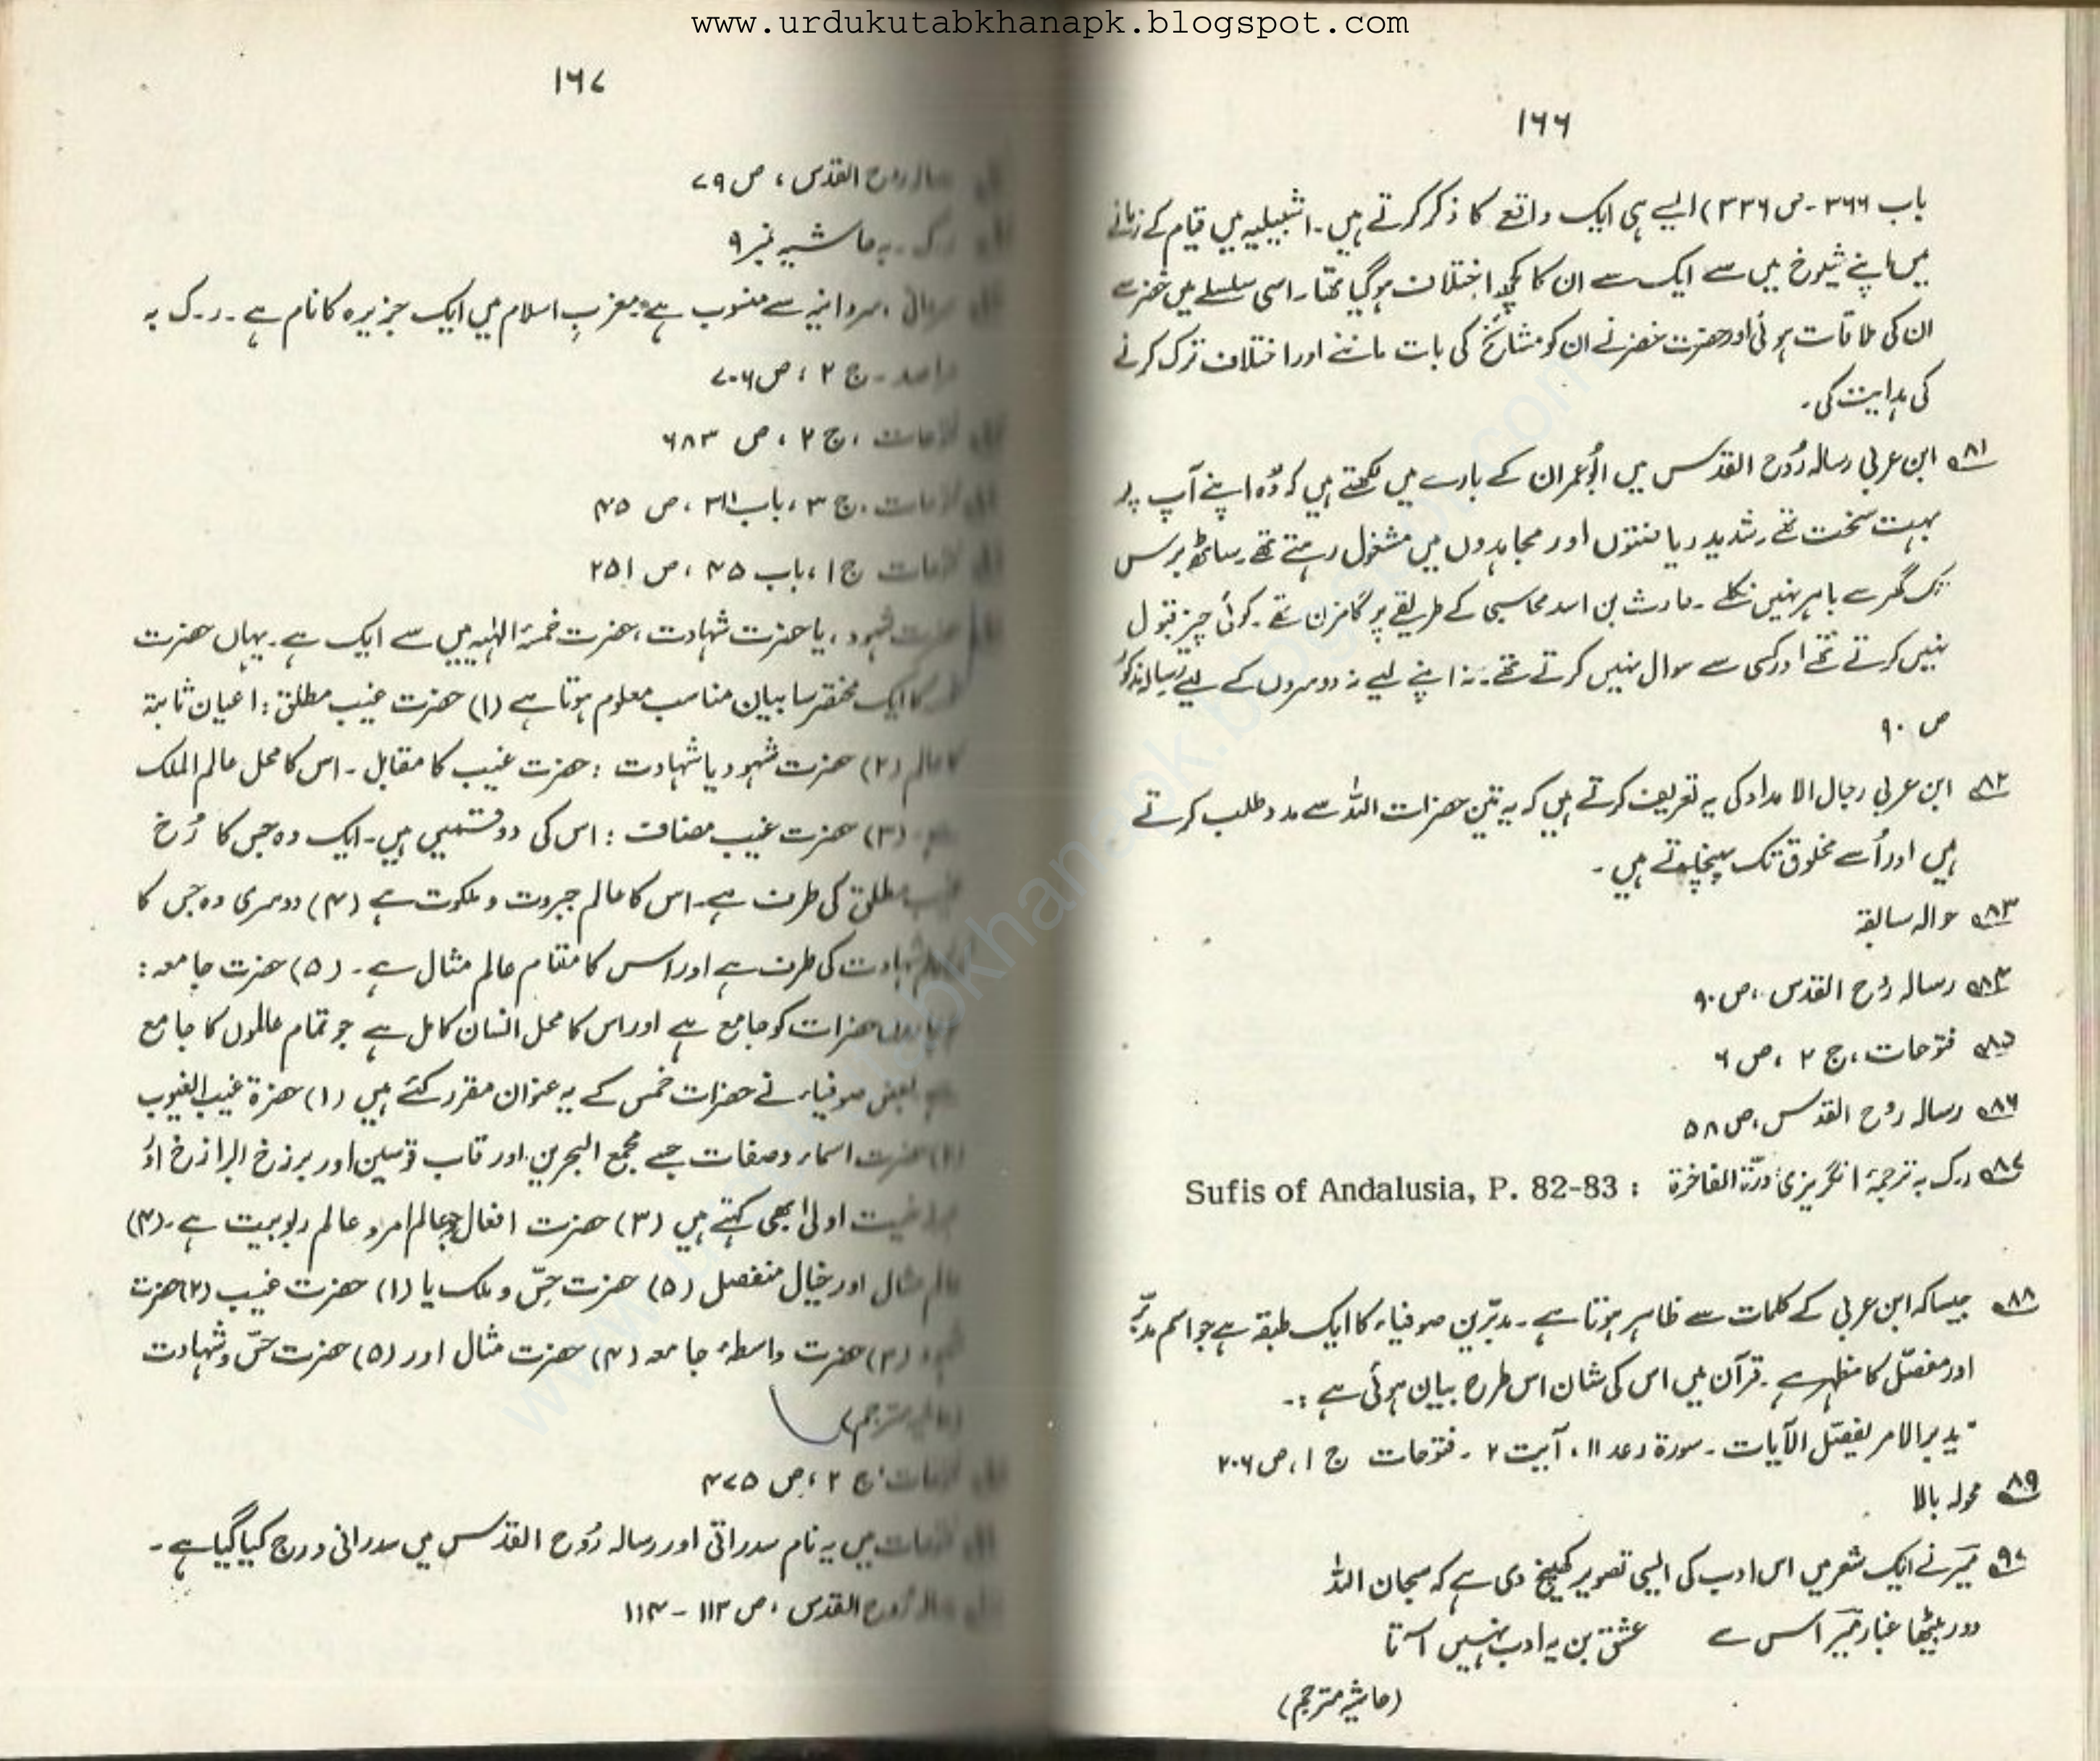 www.urdukutabkhanapk.blogspot.com
۱۶۶
باب ۳۶۶ - ص ۳۳۶) ایسے ہی ایک واقعے کا ذکر کرتے ہیں۔ اشبیلیہ میں قیام کے زمانے
میں اپنے شیوخ میں سے ایک سے ان کا کچھ اختلاف ہو گیا تھا۔ اسی سلسلے میں خضر سے
ان کی ملاقات ہوئی اور حضرت خضر نے ان کو مشائخ کی بات ماننے اور اختلاف ترک کرنے
کی ہدایت کی۔
۸۱؎ ابن عربی رسالہ رُوح القدس میں ابُو عمران کے بارے میں لکھتے ہیں کہ وُہ اپنے آپ پر
بہت سخت تھے۔ شدید ریاضتوں اور مجاہدوں میں مشغول رہتے تھے۔ ساٹھ برس
تک گھر سے باہر نہیں نکلے۔ حارث بن اسد محاسبی کے طریقے پر گامزن تھے۔ کوئی چیز قبول
نہیں کرتے تھے اور کسی سے سوال نہیں کرتے تھے۔ نہ اپنے لیے نہ دوسروں کے لیے رسالہ مذکور
ص ۹۰
۸۲؎ ابن عربی رجال الامداد کی یہ تعریف کرتے ہیں کہ یہ تین حضرات اللہ سے مدد طلب کرتے
ہیں اور اُسے مخلوق تک پہنچاتے ہیں۔
۸۳؎ حوالہ سابقہ
۸۴؎ رسالہ رُوح القدس، ص ۹۰
۸۵؎ فتوحات، ج ۲، ص ۶
۸۶؎ رسالہ روُح القدس، ص ۵۸
۸۷؎ رک بہ ترجمۂ انگریزی دُرّۃ الفاخرۃ : Sufis of Andalusia, P. 82-83
۸۸؎ جیسا کہ ابن عربی کے کلمات سے ظاہر ہوتا ہے۔ مدبّرین صوفیاء کا ایک طبقہ ہے جو اسم مدبّر
اور مفصّل کا مظہر ہے۔ قرآن میں اس کی شان اس طرح بیان ہوئی ہے :۔
"یدبر الامر یفصّل الآیات۔ سورۃ رعد ۱۱، آیت ۲ - فتوحات ج ۱، ص ۲۰۶
۸۹؎ محولہ بالا
۹۰؎ میرؔ نے ایک شعر میں اس ادب کی ایسی تصویر کھینچ دی ہے کہ سبحان اللہ
دور بیٹھا غبار میرؔ اس سے عشق بن یہ ادب نہیں آتا
(حاشیہ مترجم)
۱۶۷
رسالہ روح القدس، ص ۷۹
رک۔ بہ حاشیہ نمبر ۹
سردانیہ سے منسوب ہے۔ مغربِ اسلام میں ایک جزیرہ کا نام ہے۔ ر۔ک بہ
مراصد۔ ج ۲، ص ۷۰۶
فتوحات، ج ۲، ص ۶۸۳
فتوحات، ج ۳، باب ۳۱۱، ص ۴۵
فتوحات ج ۱، باب ۴۵، ص ۲۵۱
حضرت شہود، یا حضرت شہادت، حضرت خمسۂ الٰہیہ میں سے ایک ہے۔ یہاں حضرت
کا ایک مختصر سا بیان مناسب معلوم ہوتا ہے (۱) حضرت غیب مطلق : اعیان ثابتہ
کا عالم (۲) حضرت شہود یا شہادت : حضرت غیب کا مقابل۔ اس کا محل عالم الملک
ہے۔ (۳) حضرت غیب مضاف : اس کی دو قسمیں ہیں۔ ایک وہ جس کا رُخ
غیب مطلق کی طرف ہے۔ اس کا عالم جبروت و ملکوت ہے (۴) دوسری وہ جس کا
شہادت کی طرف ہے اور اس کا مقام عالم مثال ہے۔ (۵) حضرت جامعہ :
چاروں حضرات کو جامع ہے اور اس کا محل انسان کامل ہے جو تمام عالموں کا جامع
ہے بعض صوفیاء نے حضرات خمس کے یہ عنوان مقرر کئے ہیں (۱) حضرۃ غیب الغیوب
(۲) حضرت اسماء و صفات جسے مجمع البحرین اور قاب قوسین اور برزخ البرازخ اور
اولیٰ بھی کہتے ہیں (۳) حضرت افعال جو عالم امر و عالم ربوبیت ہے۔ (۴)
عالم مثال اور خیال منفصل (۵) حضرت حِسّ و ملک یا (۱) حضرت غیب (۲) حضرت
شہود (۳) حضرت واسطۂ جامعہ (۴) حضرت مثال اور (۵) حضرت حسّ و شہادت
(حاشیہ مترجم)
فتوحات، ج ۲، ص ۴۷۵
فتوحات میں یہ نام سدراتی اور رسالہ رُوح القدس میں سدرانی درج کیا گیا ہے۔
رسالہ رُوح القدس، ص ۱۱۳ - ۱۱۴